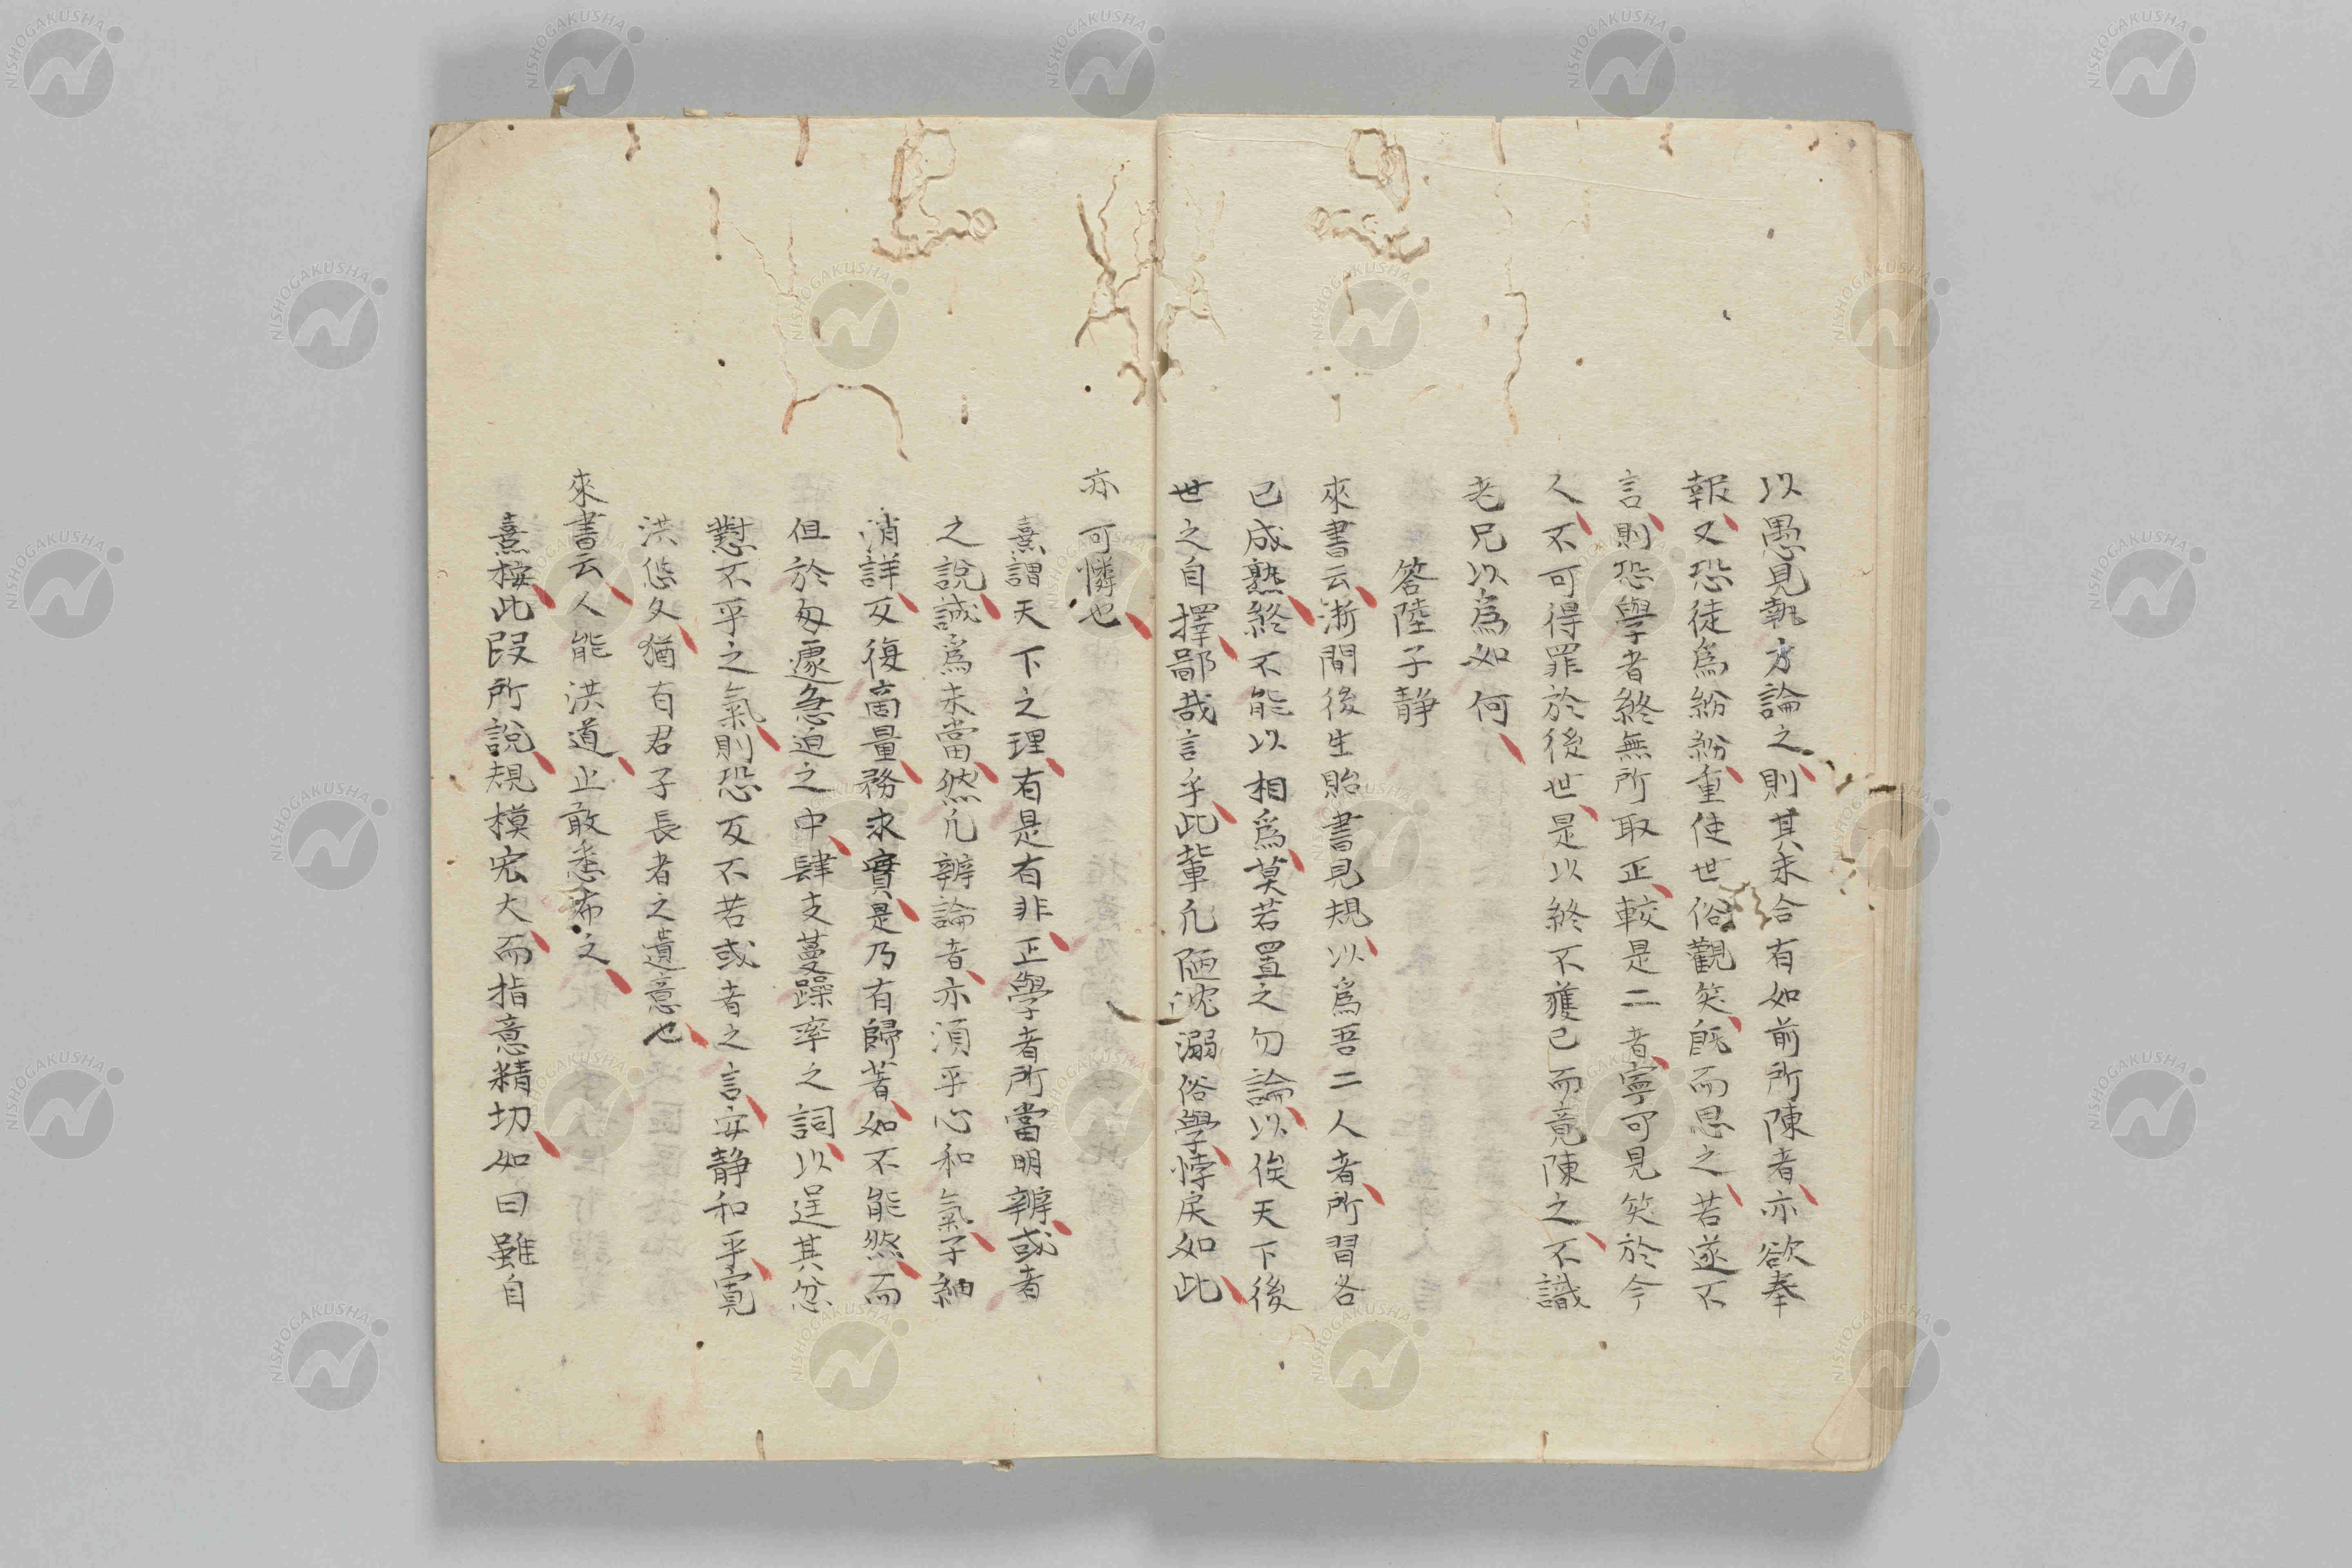 以愚見執方論之則其未合有如前所陳者亦欲奉
報又恐徒爲紛紛重使世俗觀笑既而思之若遂不
言則恐學者終無所取正較是二者寧可見笑於今
人不可得罪於後世是以終不獲已而竟陳之不識
老兄以爲如何
答陸子靜
來書云浙間後生貽書見規以爲吾二人者所習各
已成熟終不能以相爲莫若置之勿論以俟天下後
世之自擇鄙哉言乎此輩凡陋沈溺俗學悖戾如此
亦可憐也
熹謂天下之理有是有非正學者所當明辨或者
之說誠爲未當然凡辨論者亦須平心和氣子細
消詳反復商量務求實是乃有歸著如不能然而
但於匆遽急迫之中肆支蔓躁率之詞以逞其忿
懟不平之氣則恐反不若或者之言安靜和平寬
洪悠久猶有君子長者之遺意也
來書云人能洪道止敢悉布之
熹按此段所說規模宏大而指意精切如曰雖自
NISHOGAKUSHA